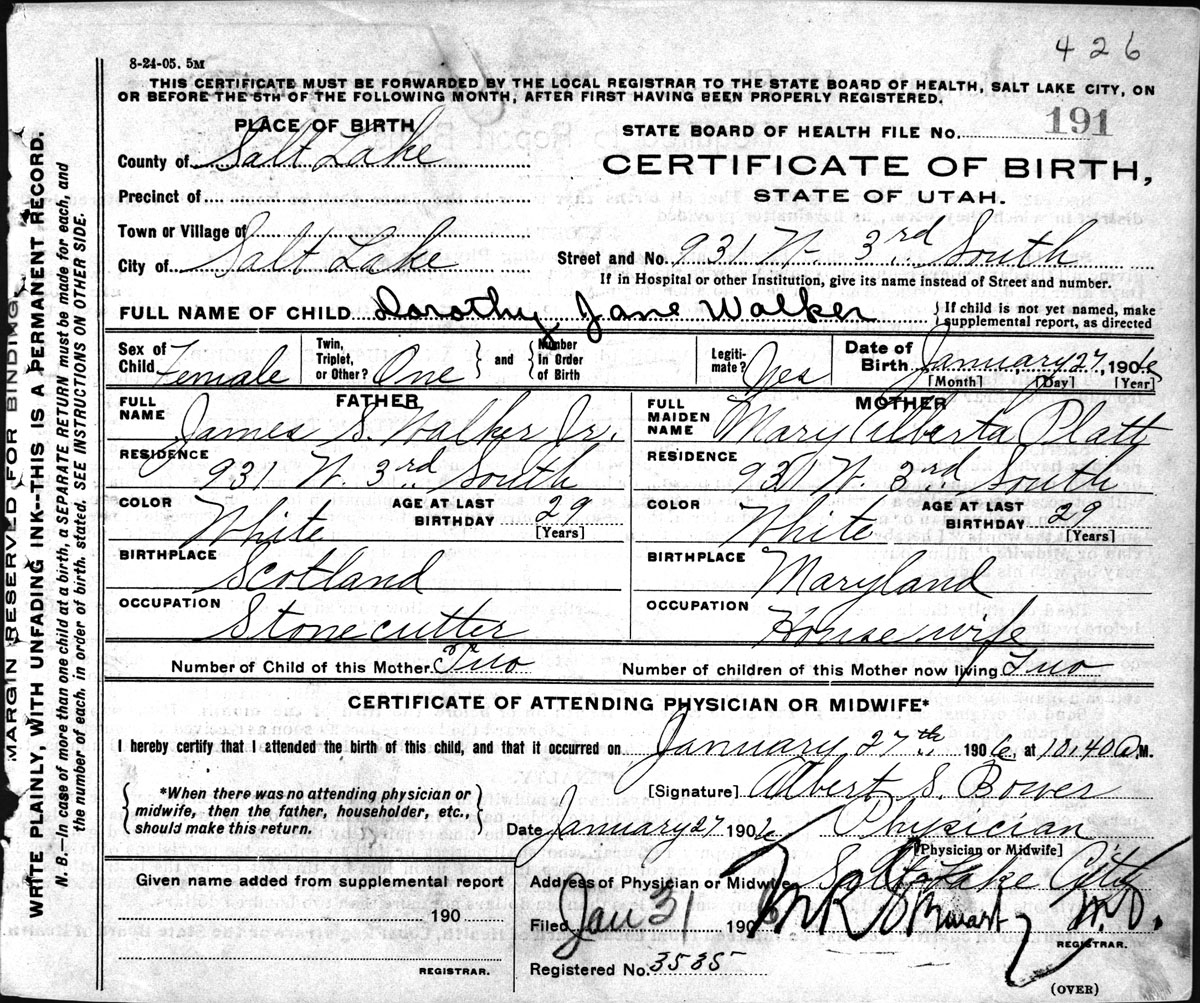 426
8-24-05. 5M
THIS CERTIFICATE MUST BE FORWARDED BY THE LOCAL REGISTRAR TO THE STATE BOARD OF HEALTH, SALT LAKE CITY, ON
OR BEFORE THE 5TH OF THE FOLLOWING MONTH, AFTER FIRST HAVING BEEN PROPERLY REGISTERED.
PLACE OF BIRTH
STATE BOARD OF HEALTH FILE No. 191
County of Salt Lake
CERTIFICATE OF BIRTH,
STATE OF UTAH.
Precinct of
Town or Village of
City of Salt Lake
Street and No. 931 W. 3rd South
If in Hospital or other Institution, give its name instead of Street and number.
FULL NAME OF CHILD Dorothy Jane Walker
{ If child is not yet named, make
supplemental report, as directed
Sex of
Child Female
Twin,
Triplet,
or Other? One } and { Number
in Order
of Birth
Legiti-
mate? Yes
Date of
Birth January 27, 1906
[Month] [Day] [Year]
FATHER
FULL
NAME
James S. Walker Jr.
RESIDENCE
931 W. 3rd South
COLOR
White
AGE AT LAST
BIRTHDAY 29
[Years]
BIRTHPLACE
Scotland
OCCUPATION
Stonecutter
MOTHER
FULL
MAIDEN
NAME
Mary Alberta Platt
RESIDENCE
931 W. 3rd South
COLOR
White
AGE AT LAST
BIRTHDAY 29
[Years]
BIRTHPLACE
Maryland
OCCUPATION
Housewife
Number of Child of this Mother Two
Number of children of this Mother now living Two
CERTIFICATE OF ATTENDING PHYSICIAN OR MIDWIFE*
I hereby certify that I attended the birth of this child, and that it occurred on January 27th 1906, at 10:40 A.M.
{ *When there was no attending physician or
midwife, then the father, householder, etc.,
should make this return. }
[Signature] Albert S. Bower
Date January 27 1906 Physician
[Physician or Midwife]
Given name added from supplemental report
190
REGISTRAR.
Address of Physician or Midwife Salt Lake City
Filed Jan 31 1906 M.D.
REGISTRAR.
Registered No. 3535
(OVER)
MARGIN RESERVED FOR BINDING.
WRITE PLAINLY, WITH UNFADING INK--THIS IS A PERMANENT RECORD.
N. B.—In case of more than one child at a birth, a SEPARATE RETURN must be made for each, and
the number of each, in order of birth, stated. SEE INSTRUCTIONS ON OTHER SIDE.